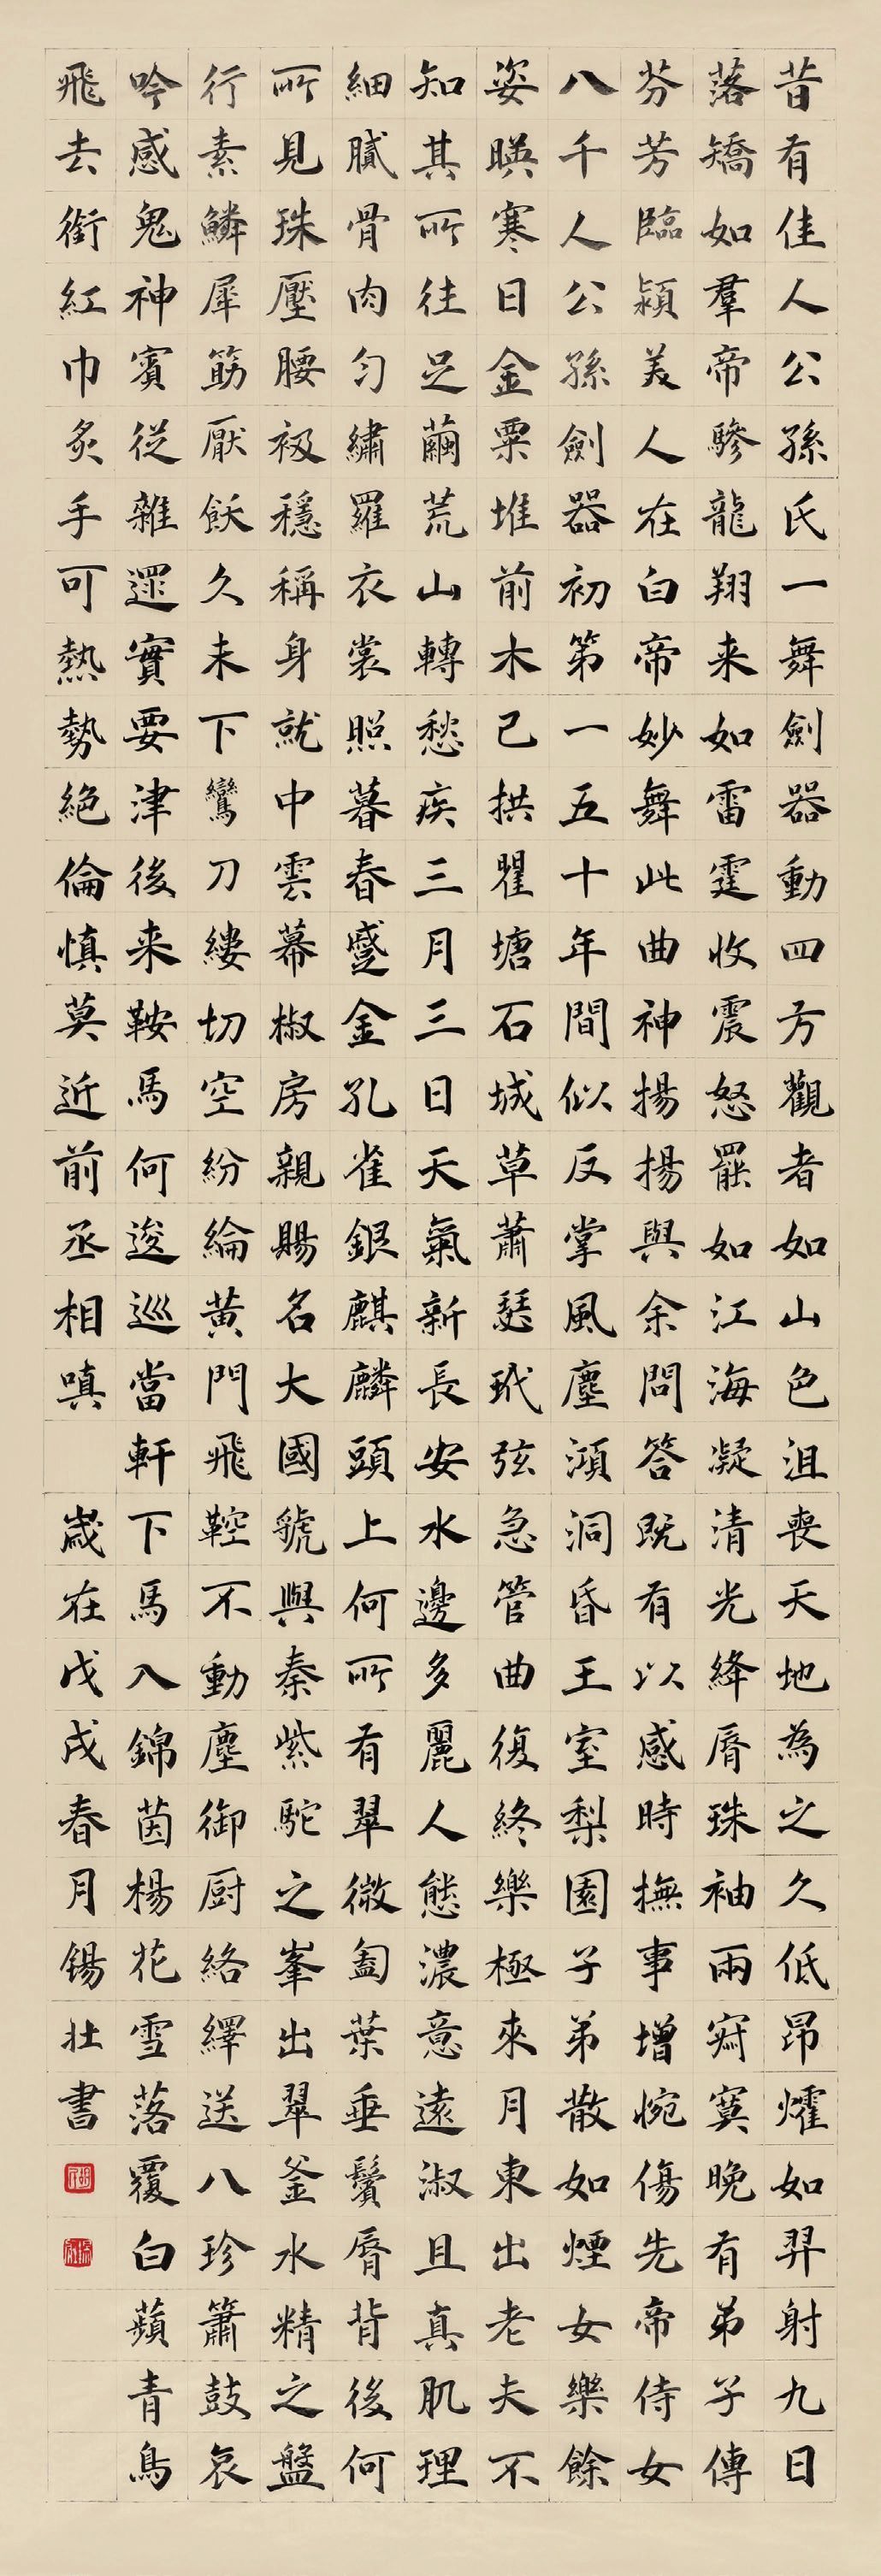 昔有佳人公孫氏一舞劍器動四方觀者如山色沮喪天地為之久低昂燿如羿射九日
落矯如羣帝驂龍翔来如雷霆收震怒罷如江海凝清光絳脣珠袖兩寂寞晚有弟子傳
芬芳臨潁美人在白帝妙舞此曲神揚揚與余問答既有以感時撫事增惋傷先帝侍女
八千人公孫劍器初第一五十年間似反掌風塵澒洞昏王室梨園子弟散如煙女樂餘
姿暎寒日金粟堆前木已拱瞿塘石城草蕭瑟玳弦急管曲復終樂極來月東出老夫不
知其所往足繭荒山轉愁疾三月三日天氣新長安水邊多麗人態濃意遠淑且真肌理
細膩骨肉匀繡羅衣裳照暮春蹙金孔雀銀麒麟頭上何所有翠微㔩葉垂鬢脣背後何
所見珠壓腰衱穩稱身就中雲幕椒房親賜名大國虢與秦紫駝之峯出翠釜水精之盤
行素鱗犀筯厭飫久未下鸞刀縷切空紛綸黃門飛鞚不動塵御厨絡繹送八珍簫鼓哀
吟感鬼神賓從雜遝實要津後来鞍馬何逡巡當軒下馬入錦茵楊花雪落覆白蘋青鳥
飛去銜紅巾炙手可熱勢絕倫慎莫近前丞相嗔 歲在戊戌春月錫壯書